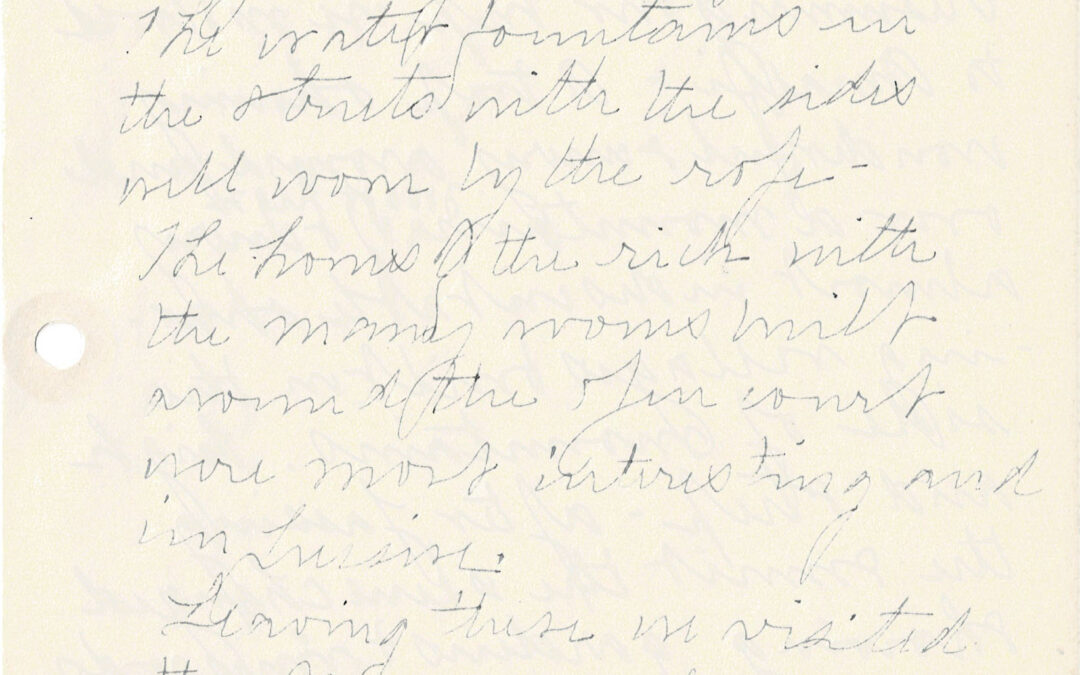 The water fountains in
the streets with the sides
well worn by the rope -
The homes of the rich with
the many rooms built
around the open court
were most interesting and
impressive.
Leaving these we visited
the